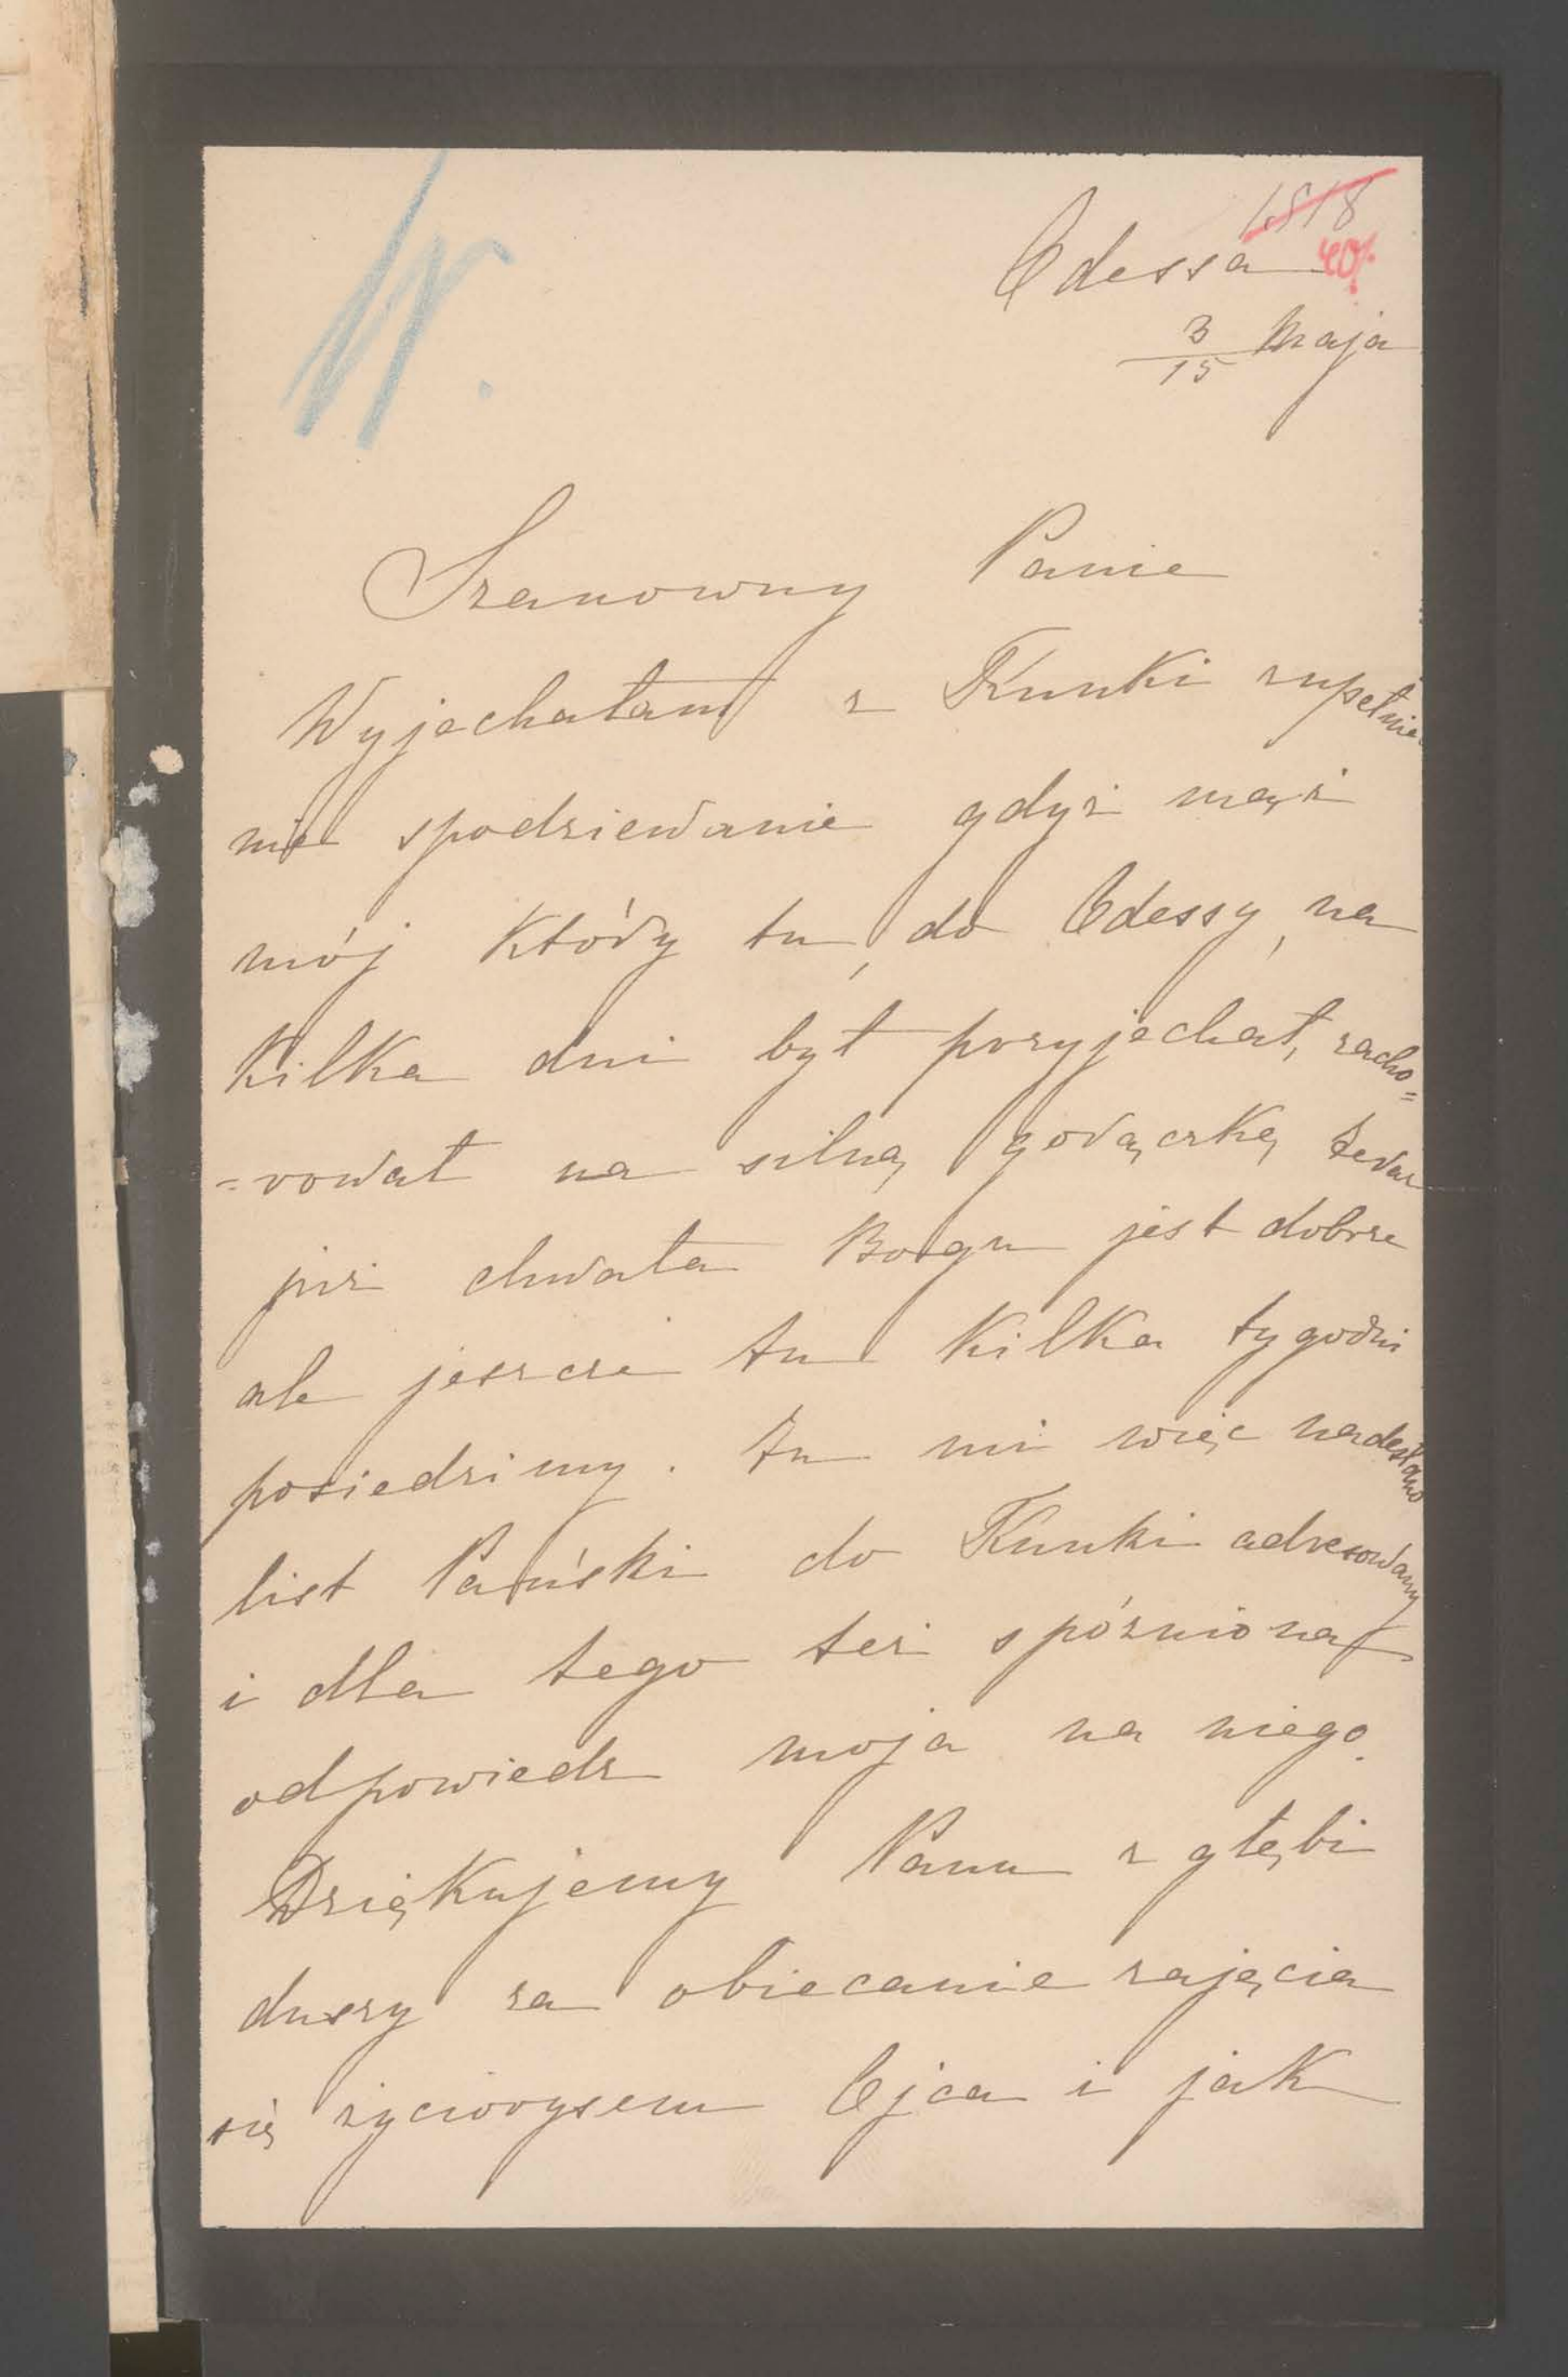 Odessa
40/.
3/15 Maja
Szanowny Panie
Wyjechałam z Kunki zupełnie
nie spodziewanie gdyż mąż
mój który tu, do Odessy, na
kilka dni był przyjechał, zacho=
=rował na silną gorączkę, teraz
już chwała Bogu jest dobrze
ale jeszcze tu kilka tygodni
posiedzimy. Tu mi więc nadesłano
list Pański do Kunki adresowany
i dla tego też spóźniona
odpowiedz moja na niego.
Dziękujemy Panu z głębi
duszy za obiecanie zajęcia
się życiorysem Ojca i jak